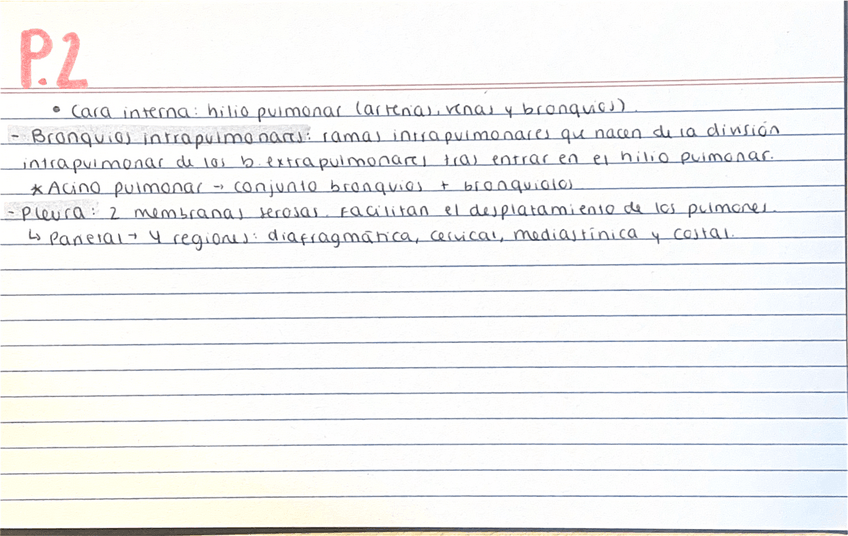 P.2
• Cara interna: hilio pulmonar (arterias, venas y bronquios).
- Bronquios intrapulmonares: ramas intrapulmonares que nacen de la división
intrapulmonar de los b. extrapulmonares tras entrar en el hilio pulmonar.
* Acino pulmonar → conjunto bronquios + bronquiolos
- Pleura: 2 membranas serosas. Facilitan el desplazamiento de los pulmones.
↳ Parietal → 4 regiones: diafragmática, cervical, mediastínica y costal.